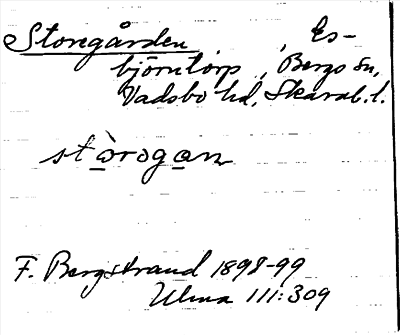 Storegården, Es-
björntorp, Bergs Sn,
Vadsbo hd, Skarab. l.
stòrogan
F. Bergstrand 1898-99
Ulma 111:309